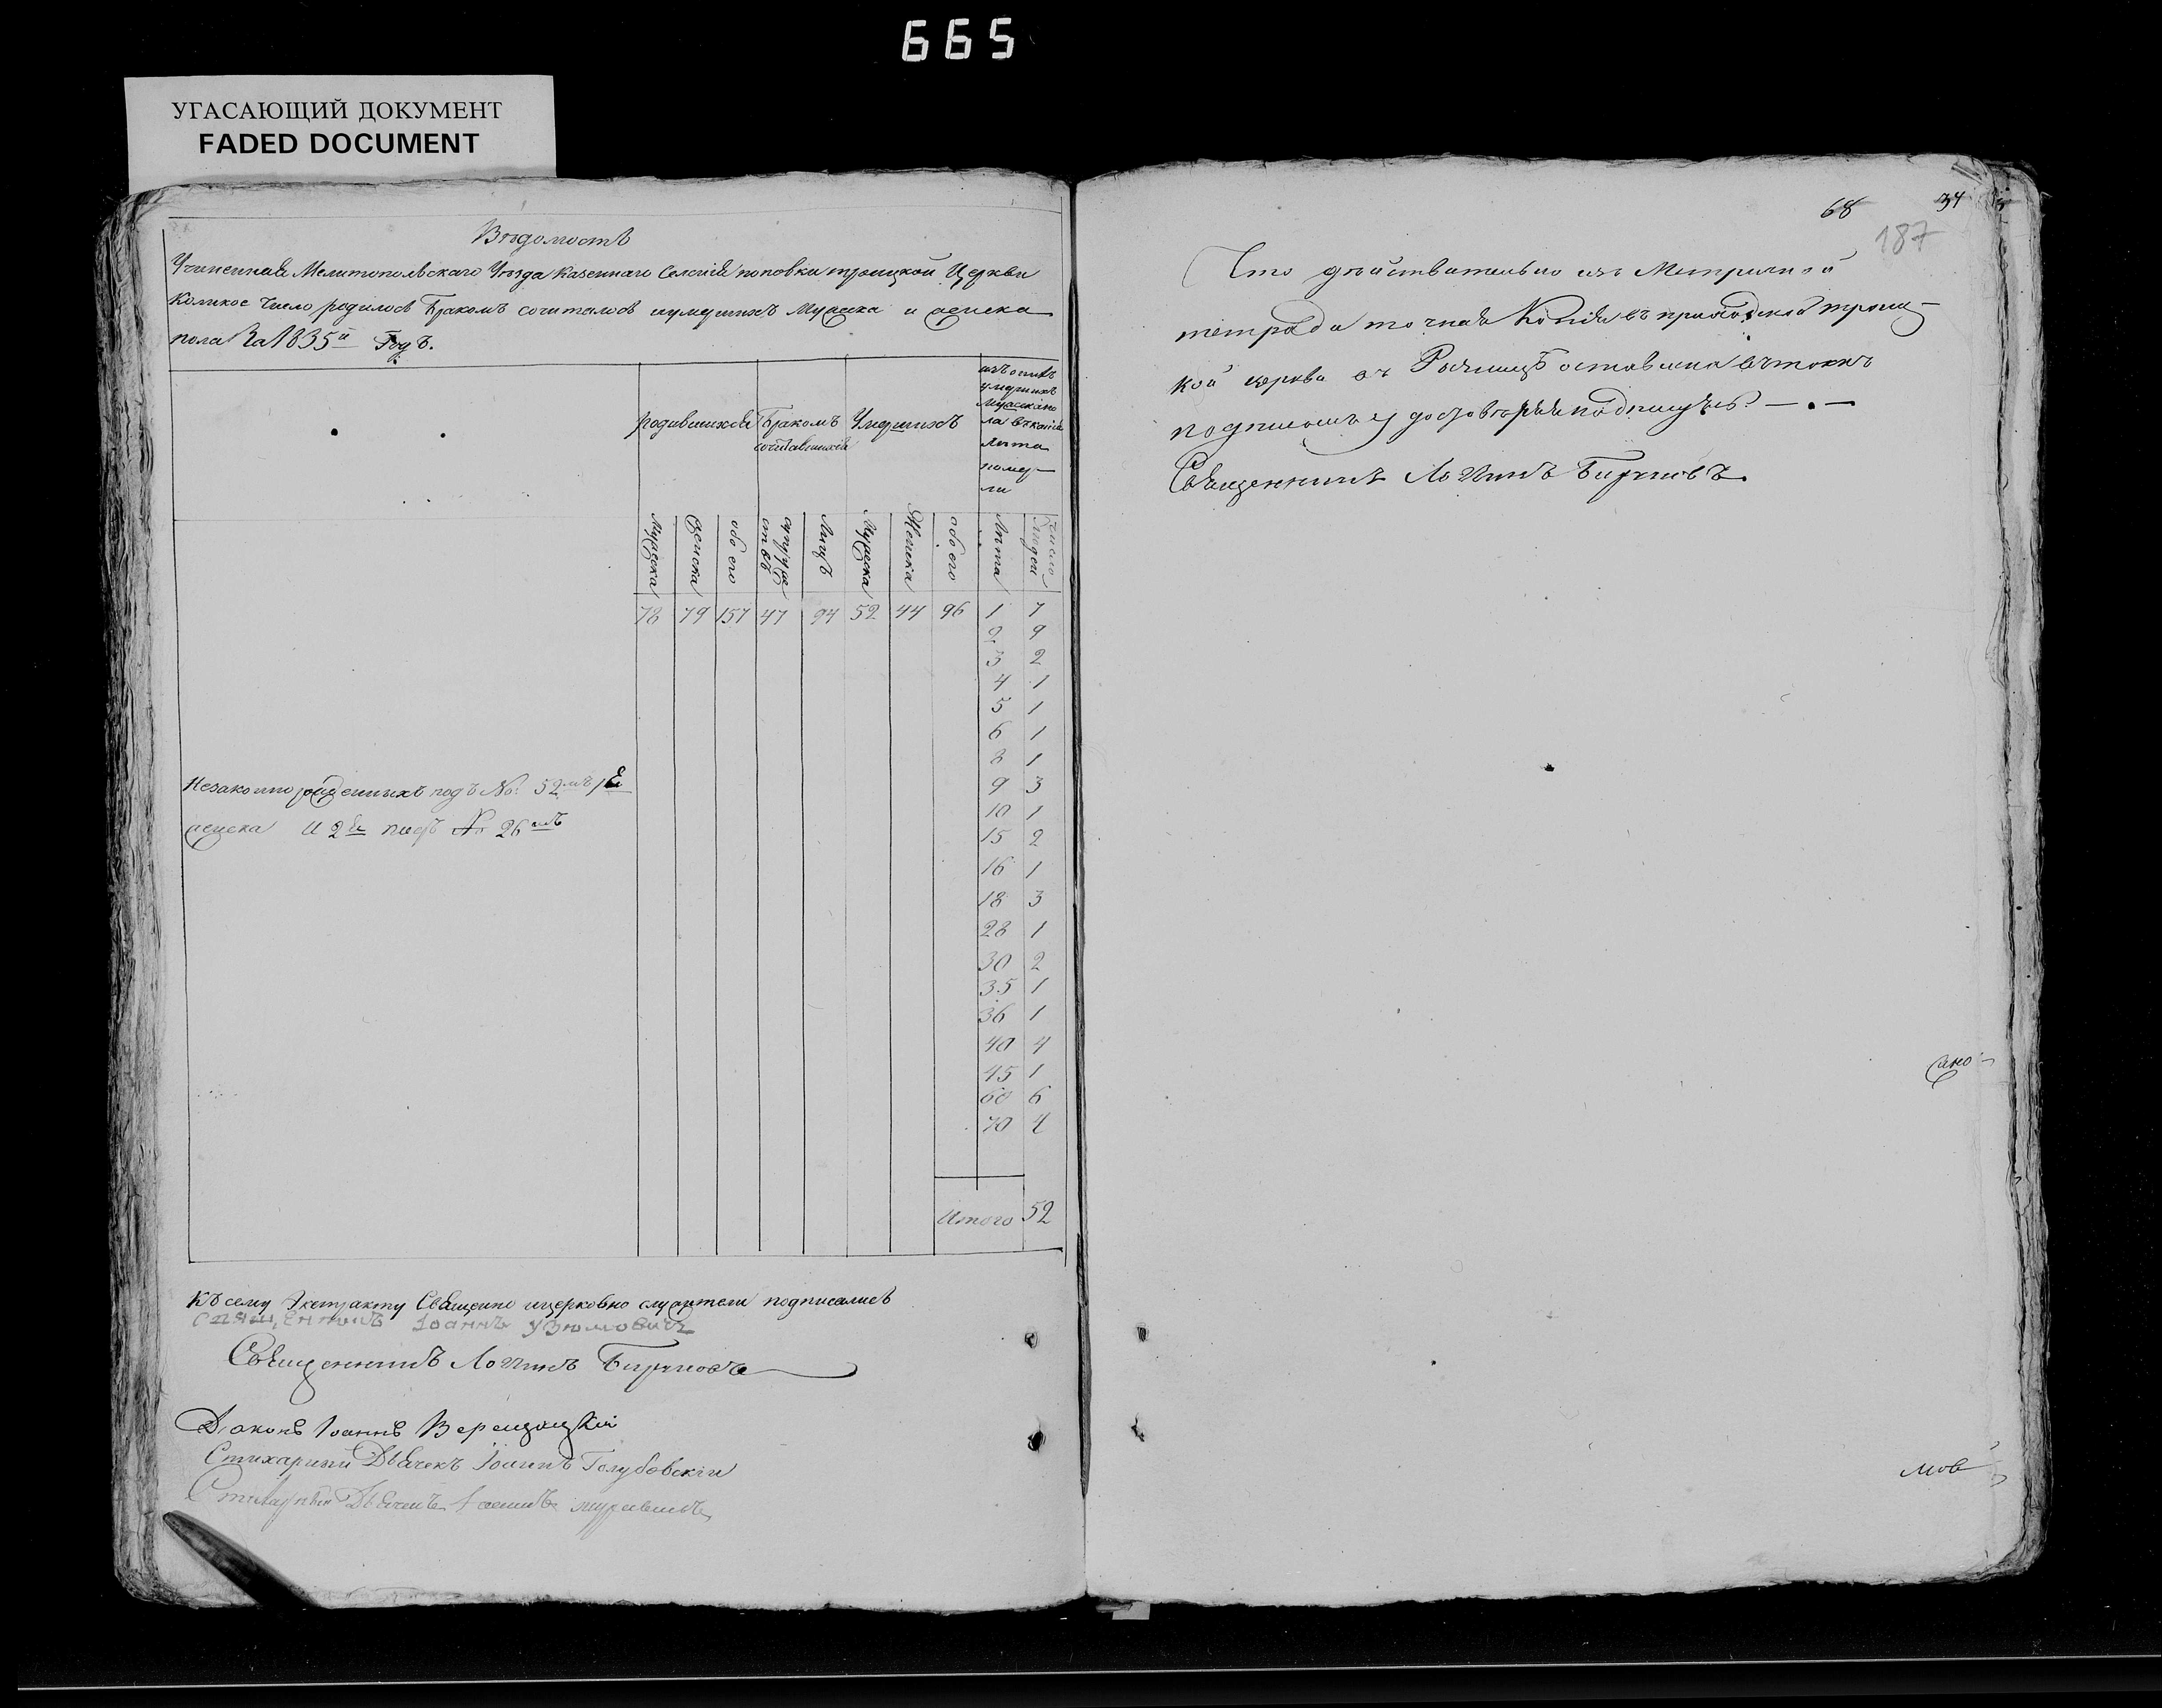 665
УГАСАЮЩИЙ ДОКУМЕНТ
FADED DOCUMENT
Вѣдомость
Учиненная Мелитопольскаго Уѣзда казеннаго Селенія поповки троицкой Церкви
Коликое число родилось бракомъ сочиталось и умершихъ Мужеска и женска
пола За 1835й Годъ.
родившихся
Бракомъ сочитавшихся
Умершихъ
изъ оныхъ
умершихъ
Мужска по
ла въ кои
лѣта
помер
ли
Мужеска
женска
обоего
супружествъ
Лицъ
Мужеска
Женска
обоего
Лѣта
число людей
78 79 157 47 94 52 44 96 1 7
2 9
3 2
4 1
5 1
6 1
8 1
9 3
10 1
15 2
16 1
18 3
28 1
30 2
35 1
36 1
40 4
45 1
60 6
70 4
Незаконнорожденныхъ подъ № 52мъ 1
женска и 2 подъ № 26мъ
Итого 52
Къ сему Экстракту Священно и церковно служители подписались
Священникъ Іоаннъ Узюмовичъ
Священникъ Логинъ Бирюковъ
Діаконъ Іоаннъ Верещацкій
Стихарный Дьячекъ Іоаннъ Голубовскій
Стихарный Дьячекъ Іоаннъ
68 34
187
Что дѣйствительно изъ Метричной
тетради точная Копія въ приходской троиц
кой церкви въ Ризницѣ оставлена въ томъ
подписомъ и достовѣряя подпишусь
Священникъ Логинъ Бирюковъ